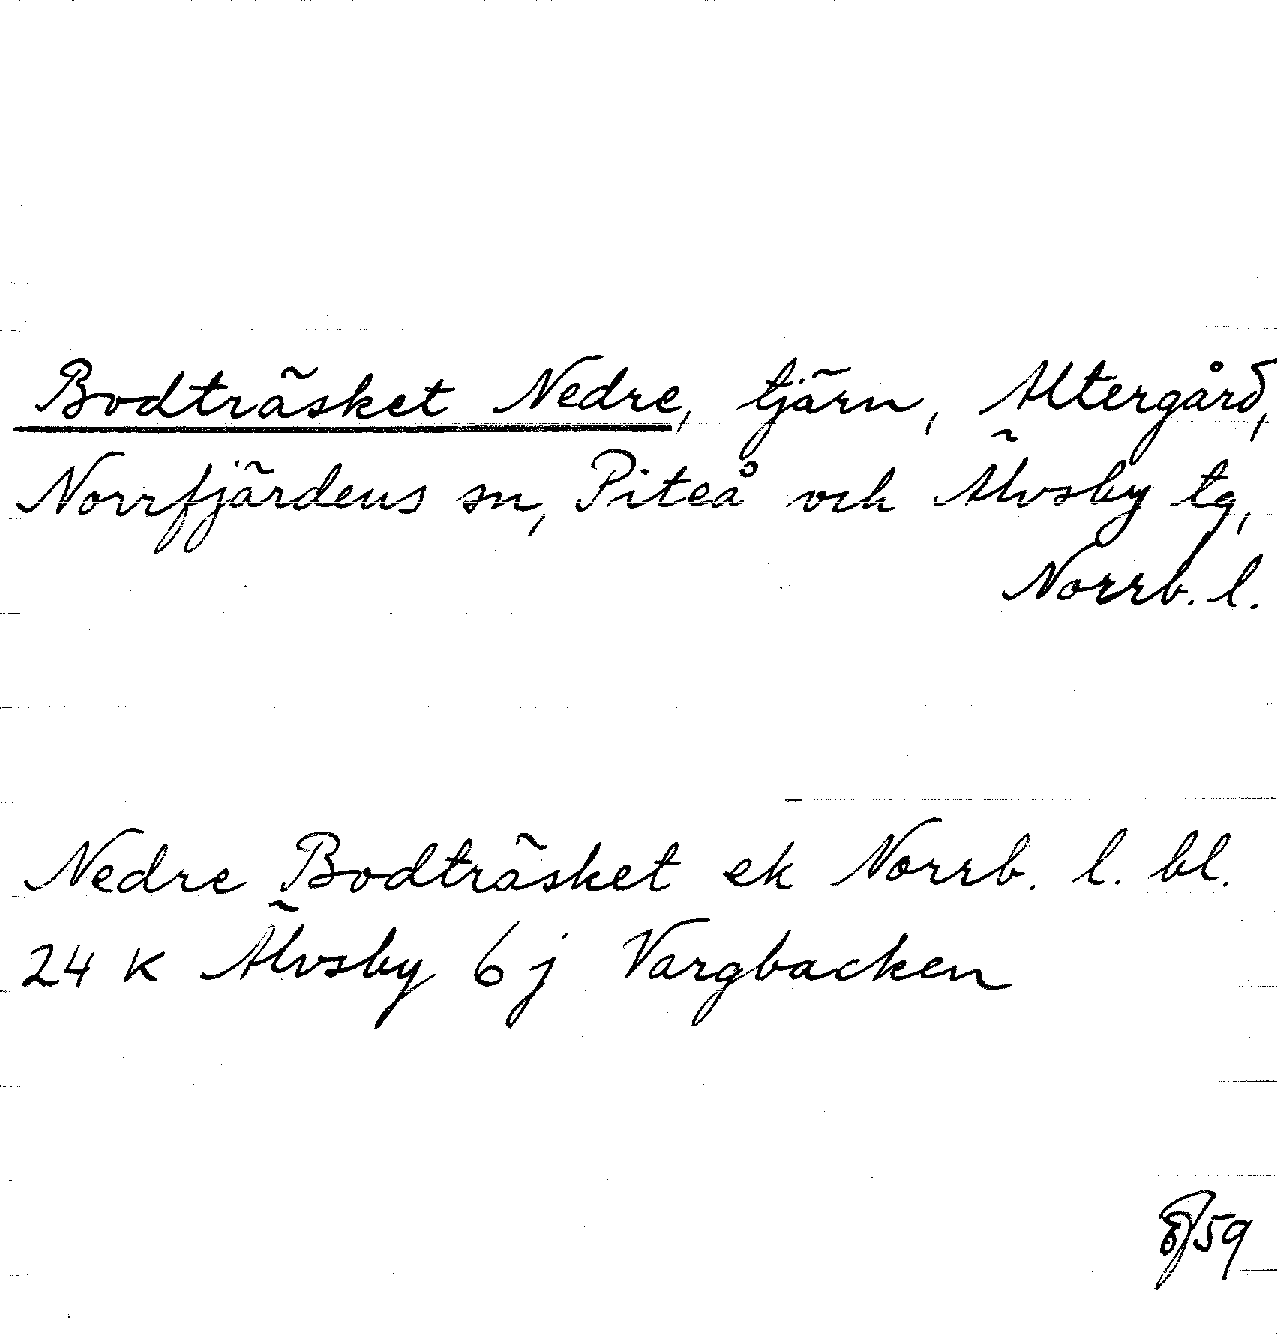 Bodträsket Nedre, tjärn, Altergård,
Norrfjärdens sn, Piteå och Älvsby tg,
Norrb. l.
Nedre Bodträsket ek Norrb. l. bl.
24 K Älvsby 6 j Vargbacken
59